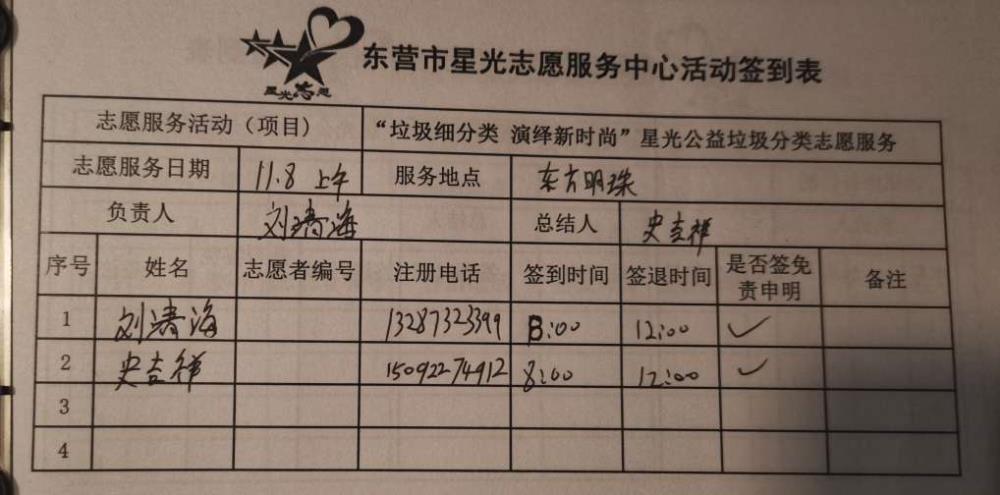 星光志愿
东营市星光志愿服务中心活动签到表
志愿服务活动（项目） “垃圾细分类 演绎新时尚”星光公益垃圾分类志愿服务
志愿服务日期 11.8 上午 服务地点 东方明珠
负责人 刘清海 总结人 史吉祥
序号 姓名 志愿者编号 注册电话 签到时间 签退时间 是否签免责申明 备注
1 刘清海 13287323399 8:00 12:00 ✓
2 史吉祥 15092274912 8:00 12:00 ✓
3
4